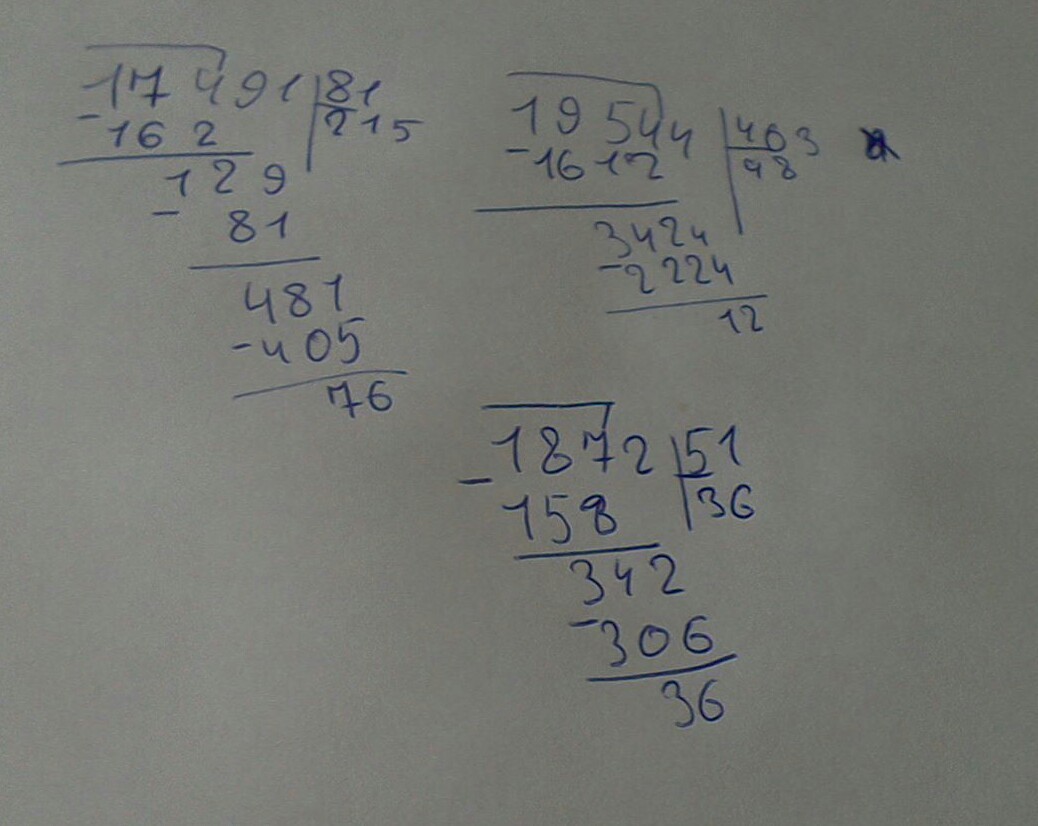 17491 81
-162 215
129
- 81
481
-405
76
19544 403
-1612 48
3424
-2224
12
1872 51
-158 36
342
-306
36